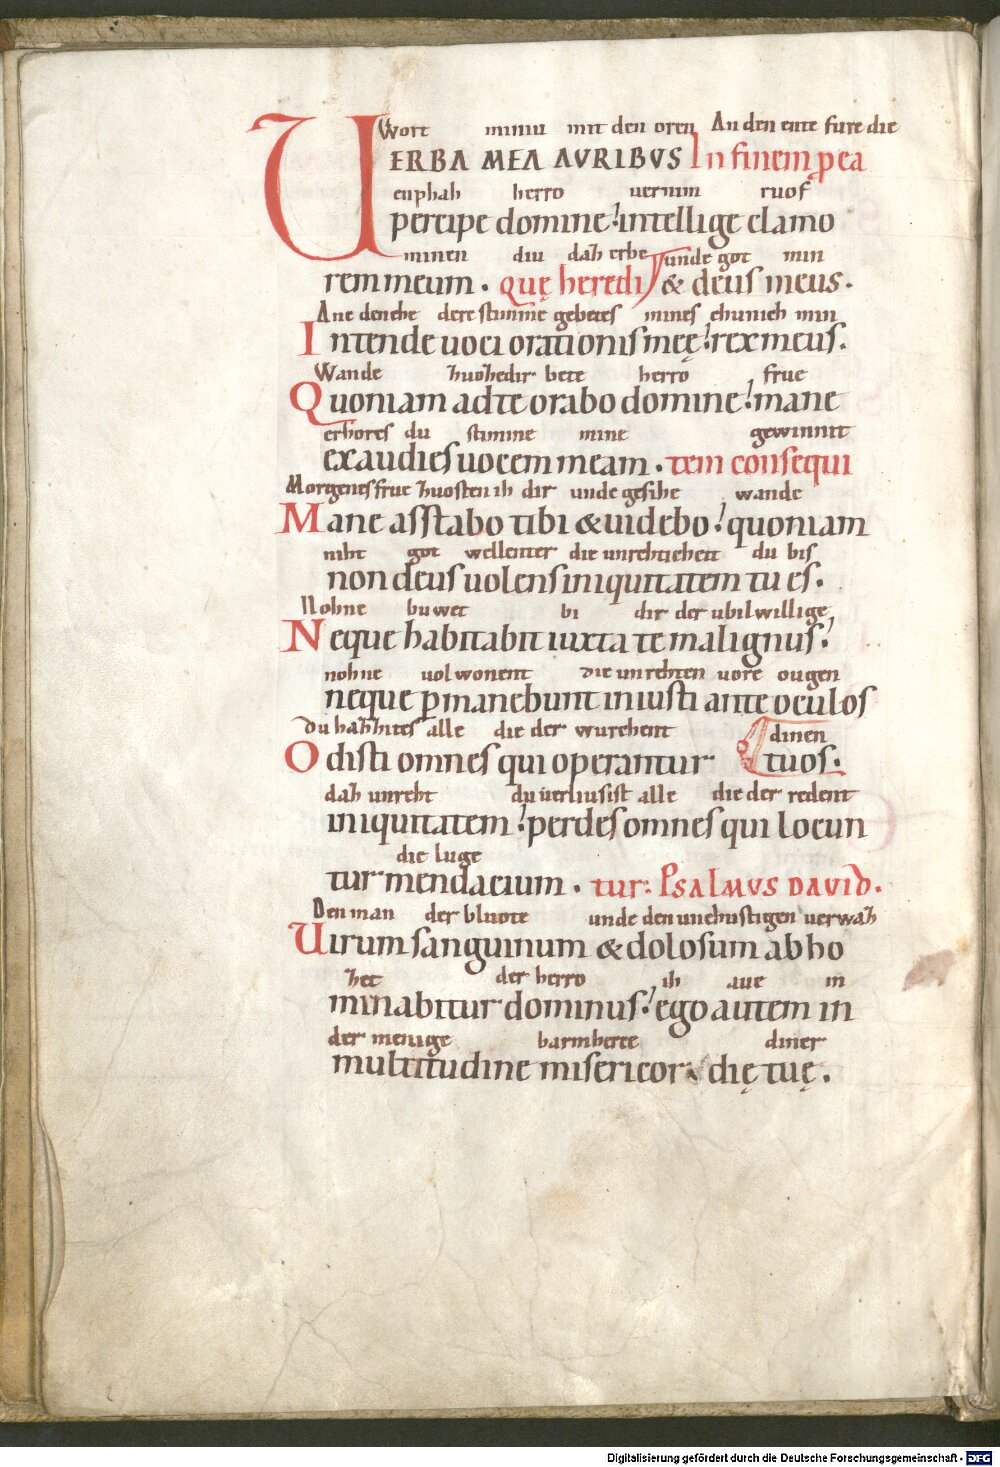 Wort miniu mit den oren An den ente fure die
VERBA MEA AVRIBVS In finem p ea
enphah herro uernim ruof
percipe domine: intellige clamo
minen diu dah erbe unde got min
rem meum. quę heredi & deus meus.
Ane denche dere stimme gebetes mines chunich min
Intende uoci orationis meę: rex meus.
Wande zuohedir bete herro frue
Quoniam ad te orabo domine: mane
erhores du stimme mine gewinnit
exaudies uocem meam. tem consequi
Morgenes frue zuosten ih dir unde gesihe wande
Mane asstabo tibi & uidebo: quoniam
niht got wellenter die unrehticheit du bis
non deus uolens iniquitatem tu es.
Nohne buwet bi dir der ubilwillige
Neque habitabit iuxta te malignus:
nohne uolwonent die unrehten uore ougen
neque pmanebunt iniusti ante oculos
du hazzites alle die der wurchent dinen
Odisti omnes qui operantur tuos.
daz unreht du uerliusist alle die der redent
iniquitatem: perdes omnes qui locun
die luge
tur mendacium. tur: PSALMVS DAVID.
Den man der bluote unde den unchustigen uerwaz
Uirum sanguinum & dolosum abho
zet der herro ih aue in
minabitur dominus: ego autem in
der menige barmherce diner
multitudine misericordię tuę.
Digitalisierung gefördert durch die Deutsche Forschungsgemeinschaft - DFG